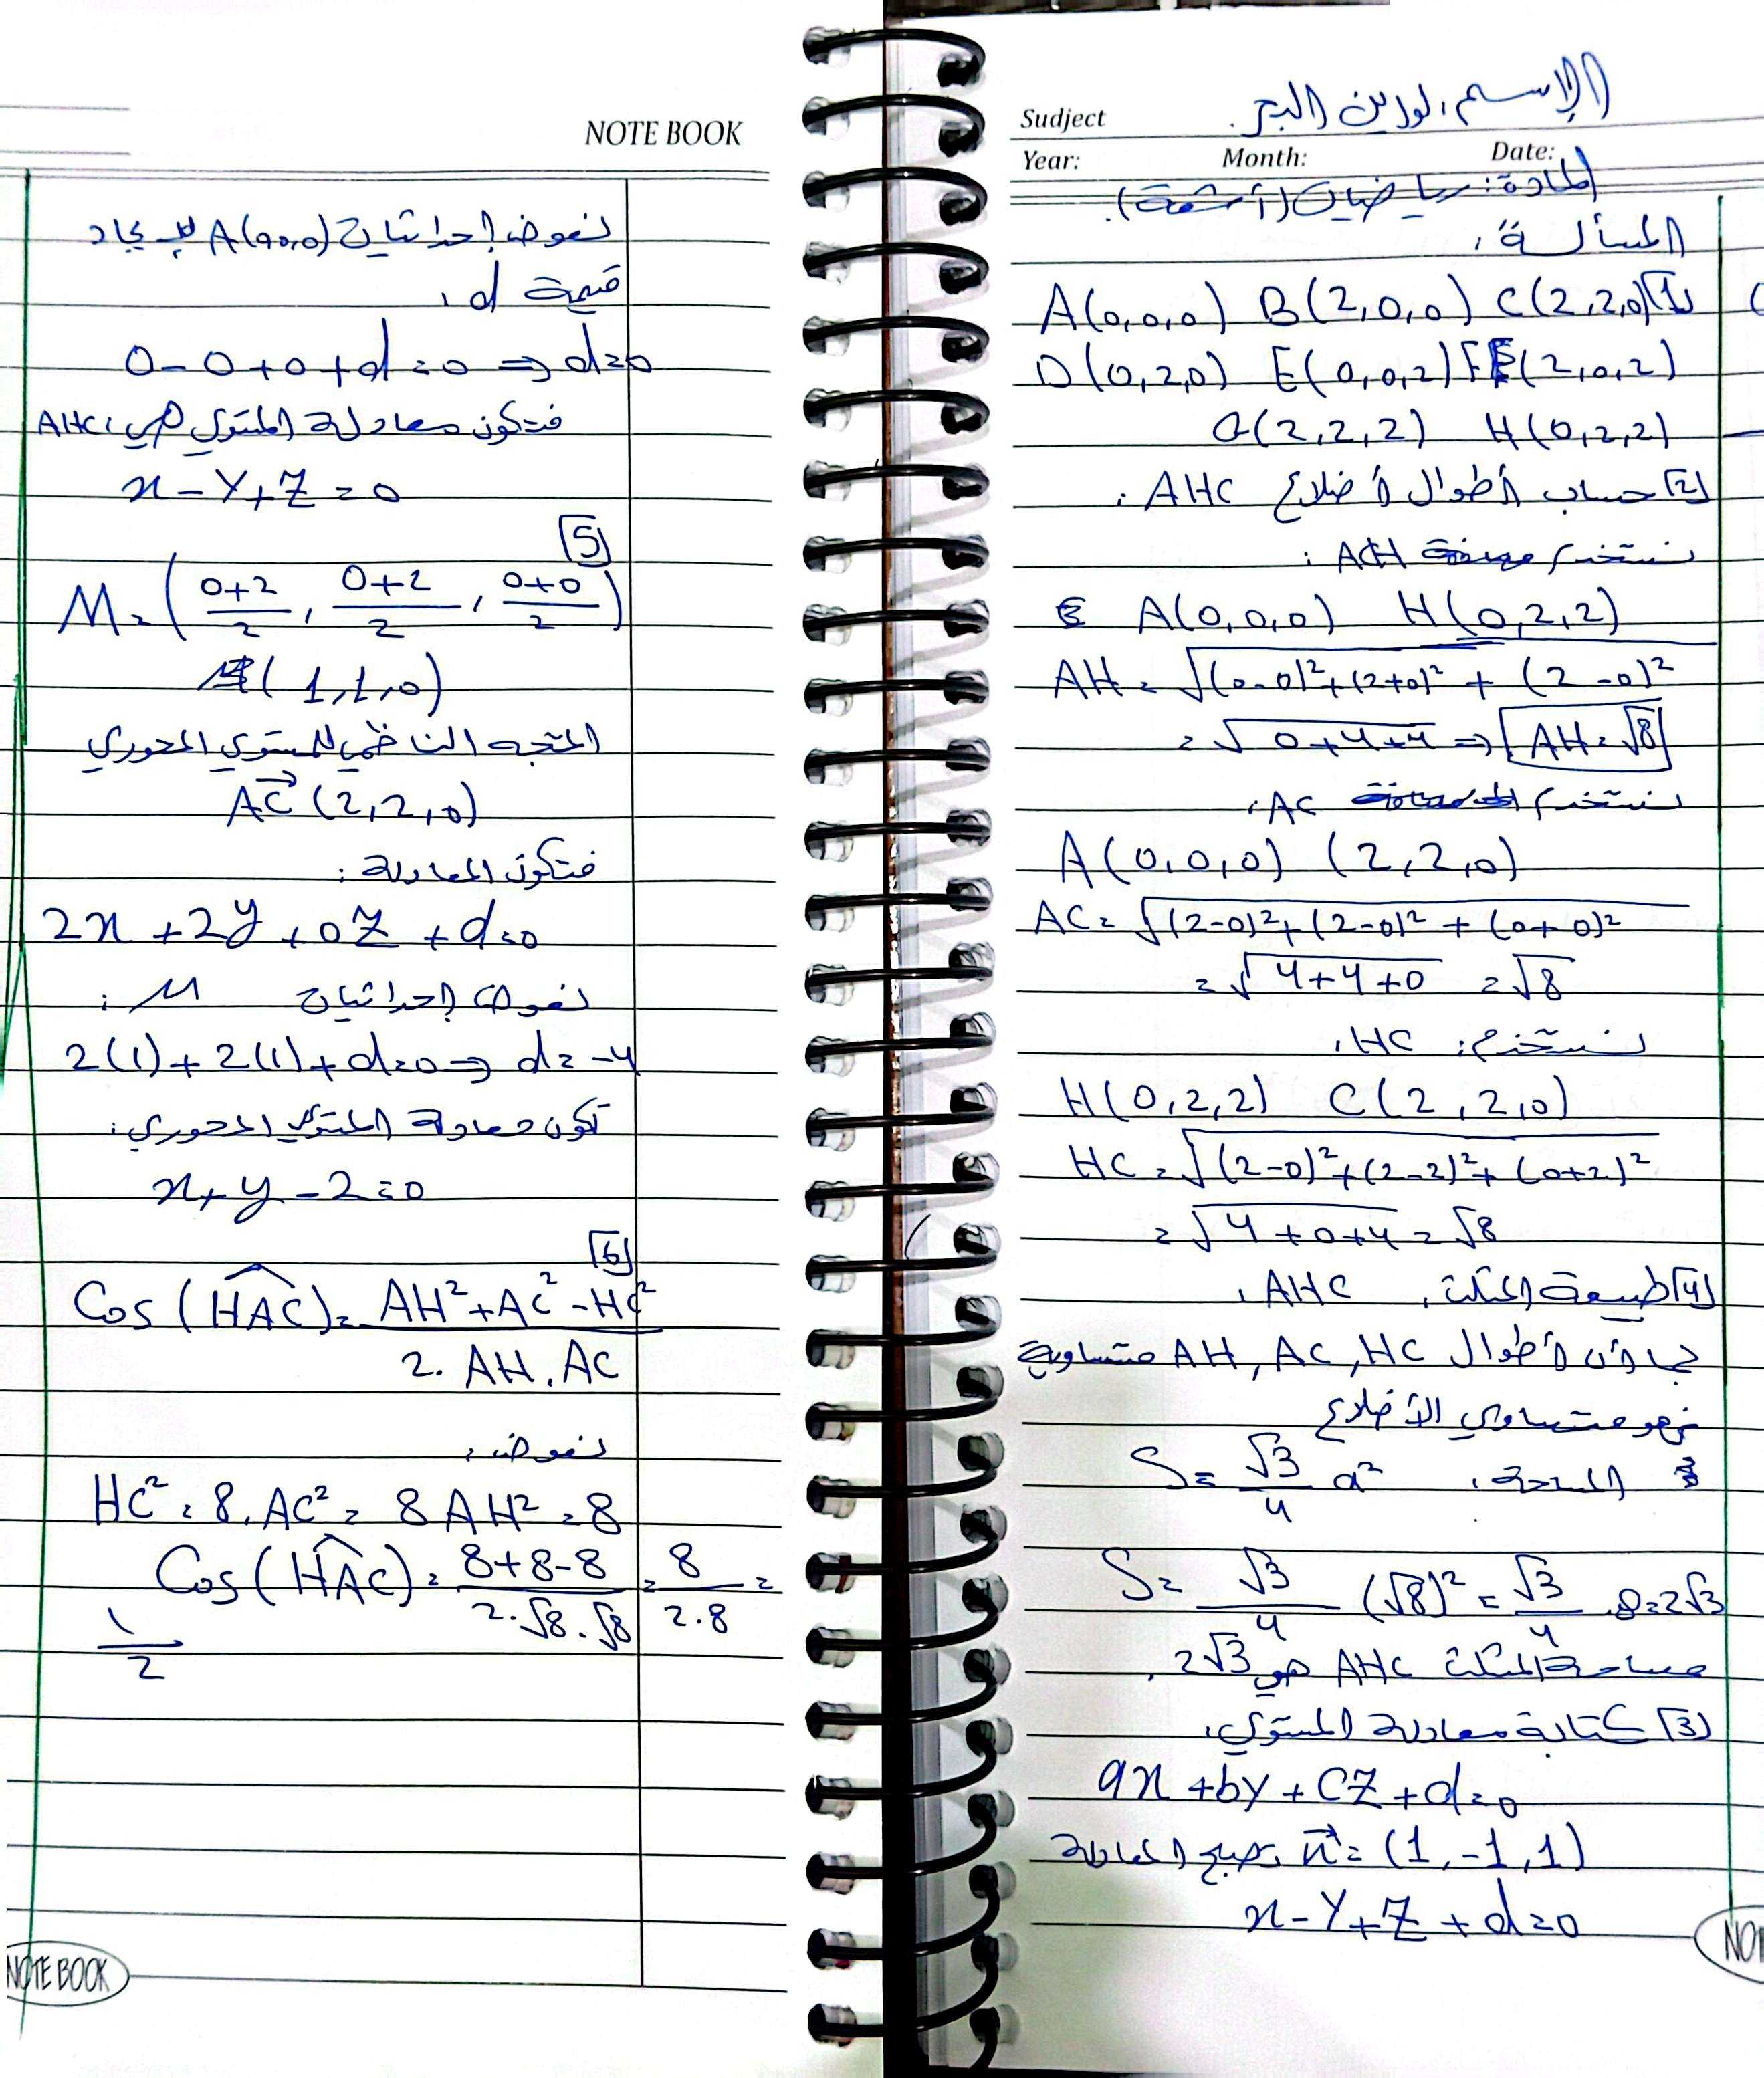 Sudject
الإسم: لورين البحر.
Year: Month: Date:
المادة: رياضيات (أشعة).
المسألة:
[1] A(0,0,0) B(2,0,0) C(2,2,0)
D(0,2,0) E(0,0,2) F(2,0,2)
G(2,2,2) H(0,2,2)
[2] حساب أطوال أضلاع AHC:
نستخدم AH:
A(0,0,0) H(0,2,2)
AH = √(0-0)²+(2+0)² + (2-0)²
= √0+4+4 ⇒ AH = √8
نستخدم AC:
A(0,0,0) (2,2,0)
AC = √(2-0)²+(2-0)² + (0+0)²
= √4+4+0 = √8
نستخدم: HC:
H(0,2,2) C(2,2,0)
HC = √(2-0)²+(2-2)²+(0+2)²
= √4+0+4 = √8
[4] طبيعة المثلث: AHC:
بما أن أطوال AH, AC, HC متساوية
فهو متساوي الأضلاع
المساحة: S = √3/4 a²
S = √3/4 (√8)² = √3/4 .8 = 2√3
مساحة المثلث AHC هي 2√3.
[3] كتابة معادلة المستوي:
ax + by + cz + d = 0
n⃗ = (1,-1,1) تصبح المعادلة
x - y + z + d = 0
NOTE BOOK
نعوض إحداثيات A(0,0,0) لإيجاد
قيمة d:
0 - 0 + 0 + d = 0 ⇒ d = 0
فتكون معادلة المستوي هي AHC:
x - y + z = 0
[5]
M = (0+2/2, 0+2/2, 0+0/2)
M(1,1,0)
المتجه الناظمي للمستوي المحوري
AC⃗ (2,2,0)
فتكون المعادلة:
2x + 2y + 0z + d = 0
نعوض إحداثيات M:
2(1) + 2(1) + d = 0 ⇒ d = -4
تكون معادلة المستوي المحوري:
x + y - 2 = 0
[6]
Cos(HAC) = AH² + AC² - HC² / 2. AH. AC
نعوض:
HC² = 8, AC² = 8 AH² = 8
Cos(HAC) = 8+8-8 / 2.√8.√8 = 8 / 2.8 =
1/2
NOTE BOOK